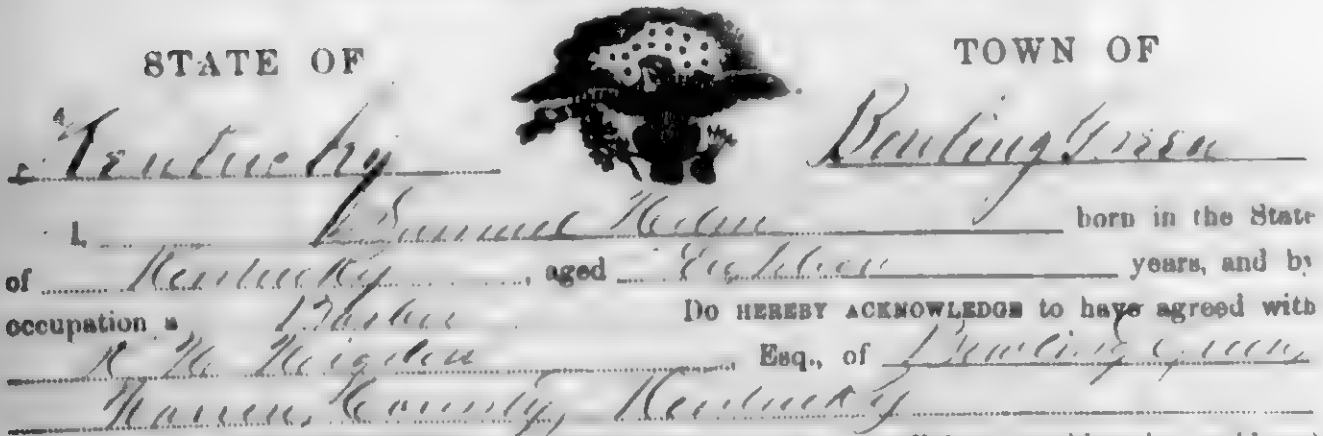 STATE OF
TOWN OF
Kentucky
Bowling Green
I, Samuel Helm born in the State
of Kentucky, aged Eighteen years, and by
occupation a Barber Do HEREBY ACKNOWLEDGE to have agreed with
Esq., of Bowling Green,
Warren County, Kentucky